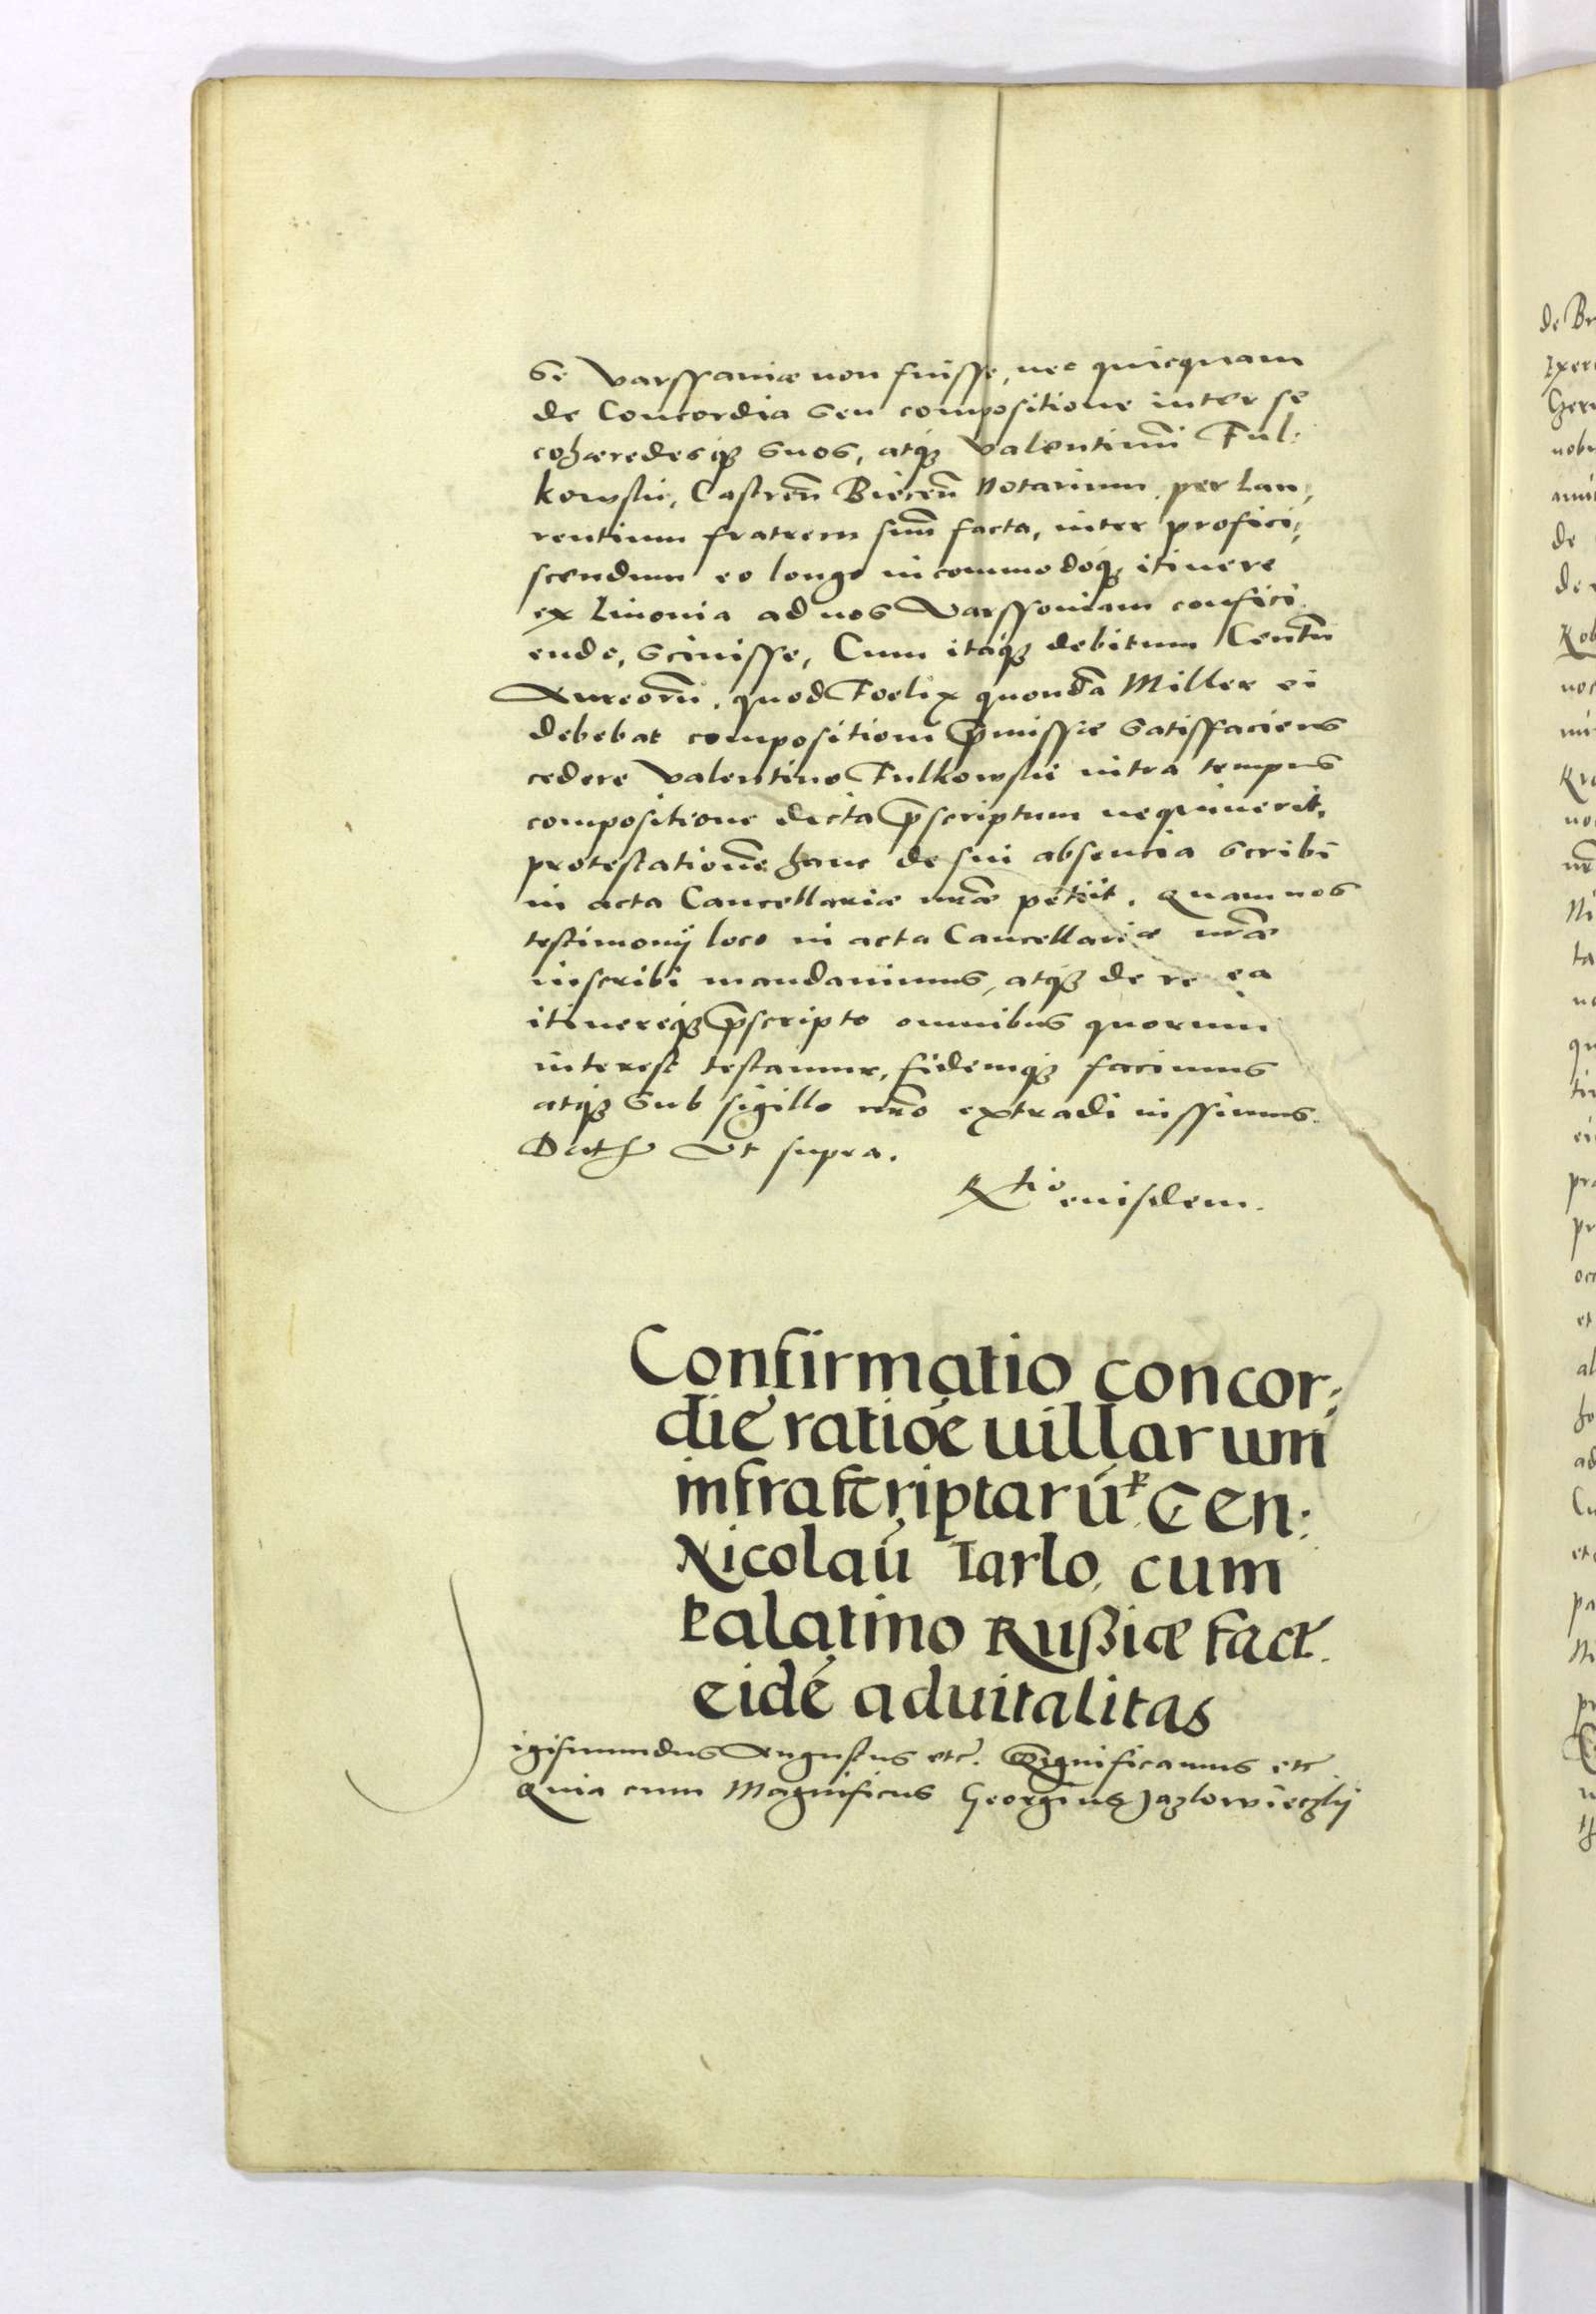 Se Varssaviæ non fuisse, nec quicquam
de Concordia seu compositione inter se
cohæredesq₃ suos, atq₃ Valentinũ Ful:
kowski, Castreñ Bieceñ Notarium, per Lau,
rentium fratrem suũ facta, inter profici,
scendum eo longo incommodoq₃ itinere
ex Livonia ad nos Varssoviam confici
endo, scivisse, Cum itaq₃ debitum Centũ
Aureorũ, quod Foelix quondã Miller ei
debebat compositioni p̃missæ satisfaciens
cedere Valentino Fulkowski intra tempus
compositione dicta p̃scriptum nequiverit,
protestationẽ hanc de sui absencia scribi
in acta Cancellariæ nr̃æ petiit. Quam nos
testimonij loco in acta Cancellariæ nr̃æ
inscribi mandavimus, atq₃ de re ea
itinereq₃ p̃scripto omnibus quorum
interest testamur, fidemq₃ facimus
atq₃ sub sigillo nr̃o extradi iussimus.
Dat̃ Ut supra.
R^tio eiusdem.
Confirmatio concor:
die ratiõe uillarum
infrascriptarũ Gen:
Nicolaũ Iarlo, cum
Palatino Rußiæ fact̃.
eidẽ aduitalitas
igismundus Augustus etc̃. Significamus etc̃
Quia cum Magnificus Georgius Jazlowieczkij